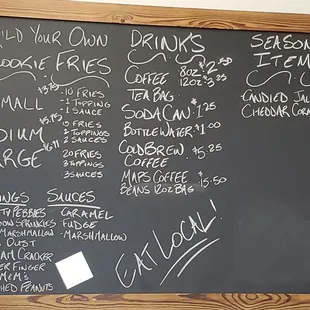 ILD YOUR OWN
OOKIE FRIES
MALL
$3.75
-10 FRIES
-1 TOPPING
-1 SAUCE
DIUM
15 FRIES
2 TOPPINGS
2 SAUCES
RGE
20 FRIES
3 TOPPINGS
3 SAUCES
NGS
TY PEBBIES
OW SPRINKLES
MARSHMALLOW
DUST
AM CRACKER
ER FINGER
M&M'S
HED PEANUTS
SAUCES
CARAMEL
-FUDGE
-MARSHMALLOW
DRINKS
COFFEE 8OZ $2.50
12OZ $3.25
TEA BAG
SODA CAN $1.25
BOTTLE WATER $1.00
COLD BREW $5.25
COFFEE
MAPS COFFEE
BEANS 12OZ BAG $15.50
EAT LOCAL!
SEASON
ITEM
CANDIED JAL
CHEDDAR COR